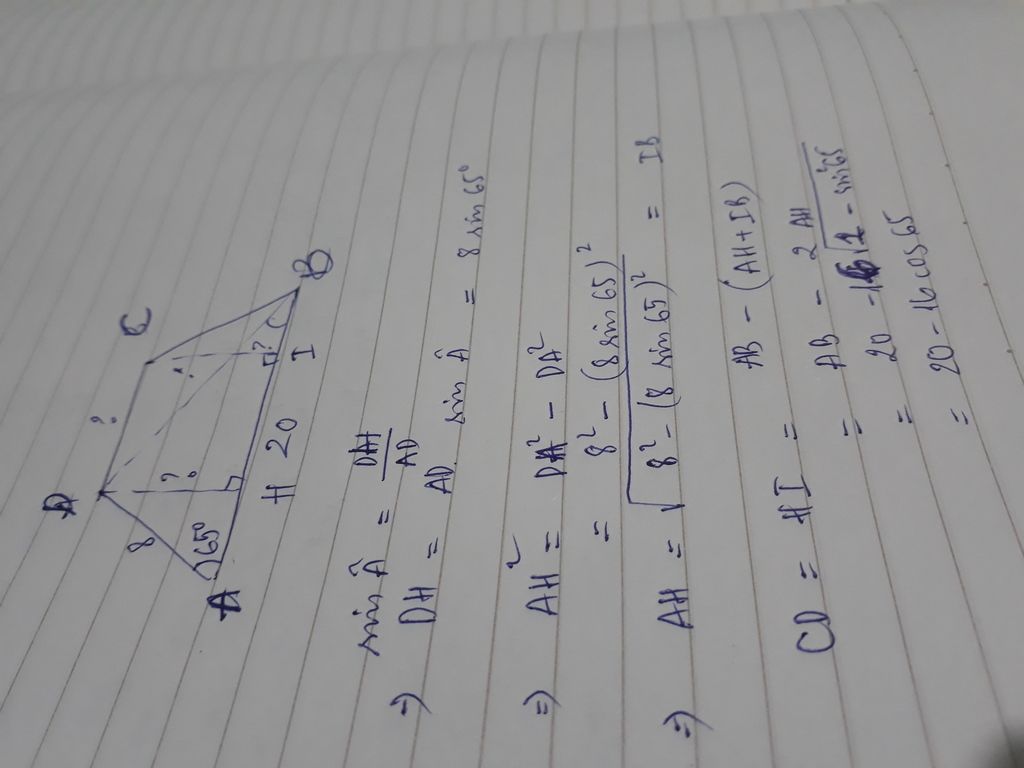 D ? C
8 ? ?
A 65° H 20 I B
sin Â = DH/AD
=) DH = AD sin Â = 8 sin 65°
=) AH² = DA² - DH²
= 8² - (8 sin 65)²
=) AH = √(8² - (8 sin 65)²) = IB
CD = HI = AB - (AH + IB)
= AB - 2 AH
= 20 - 16 √(1 - sin²65)
= 20 - 16 cos 65